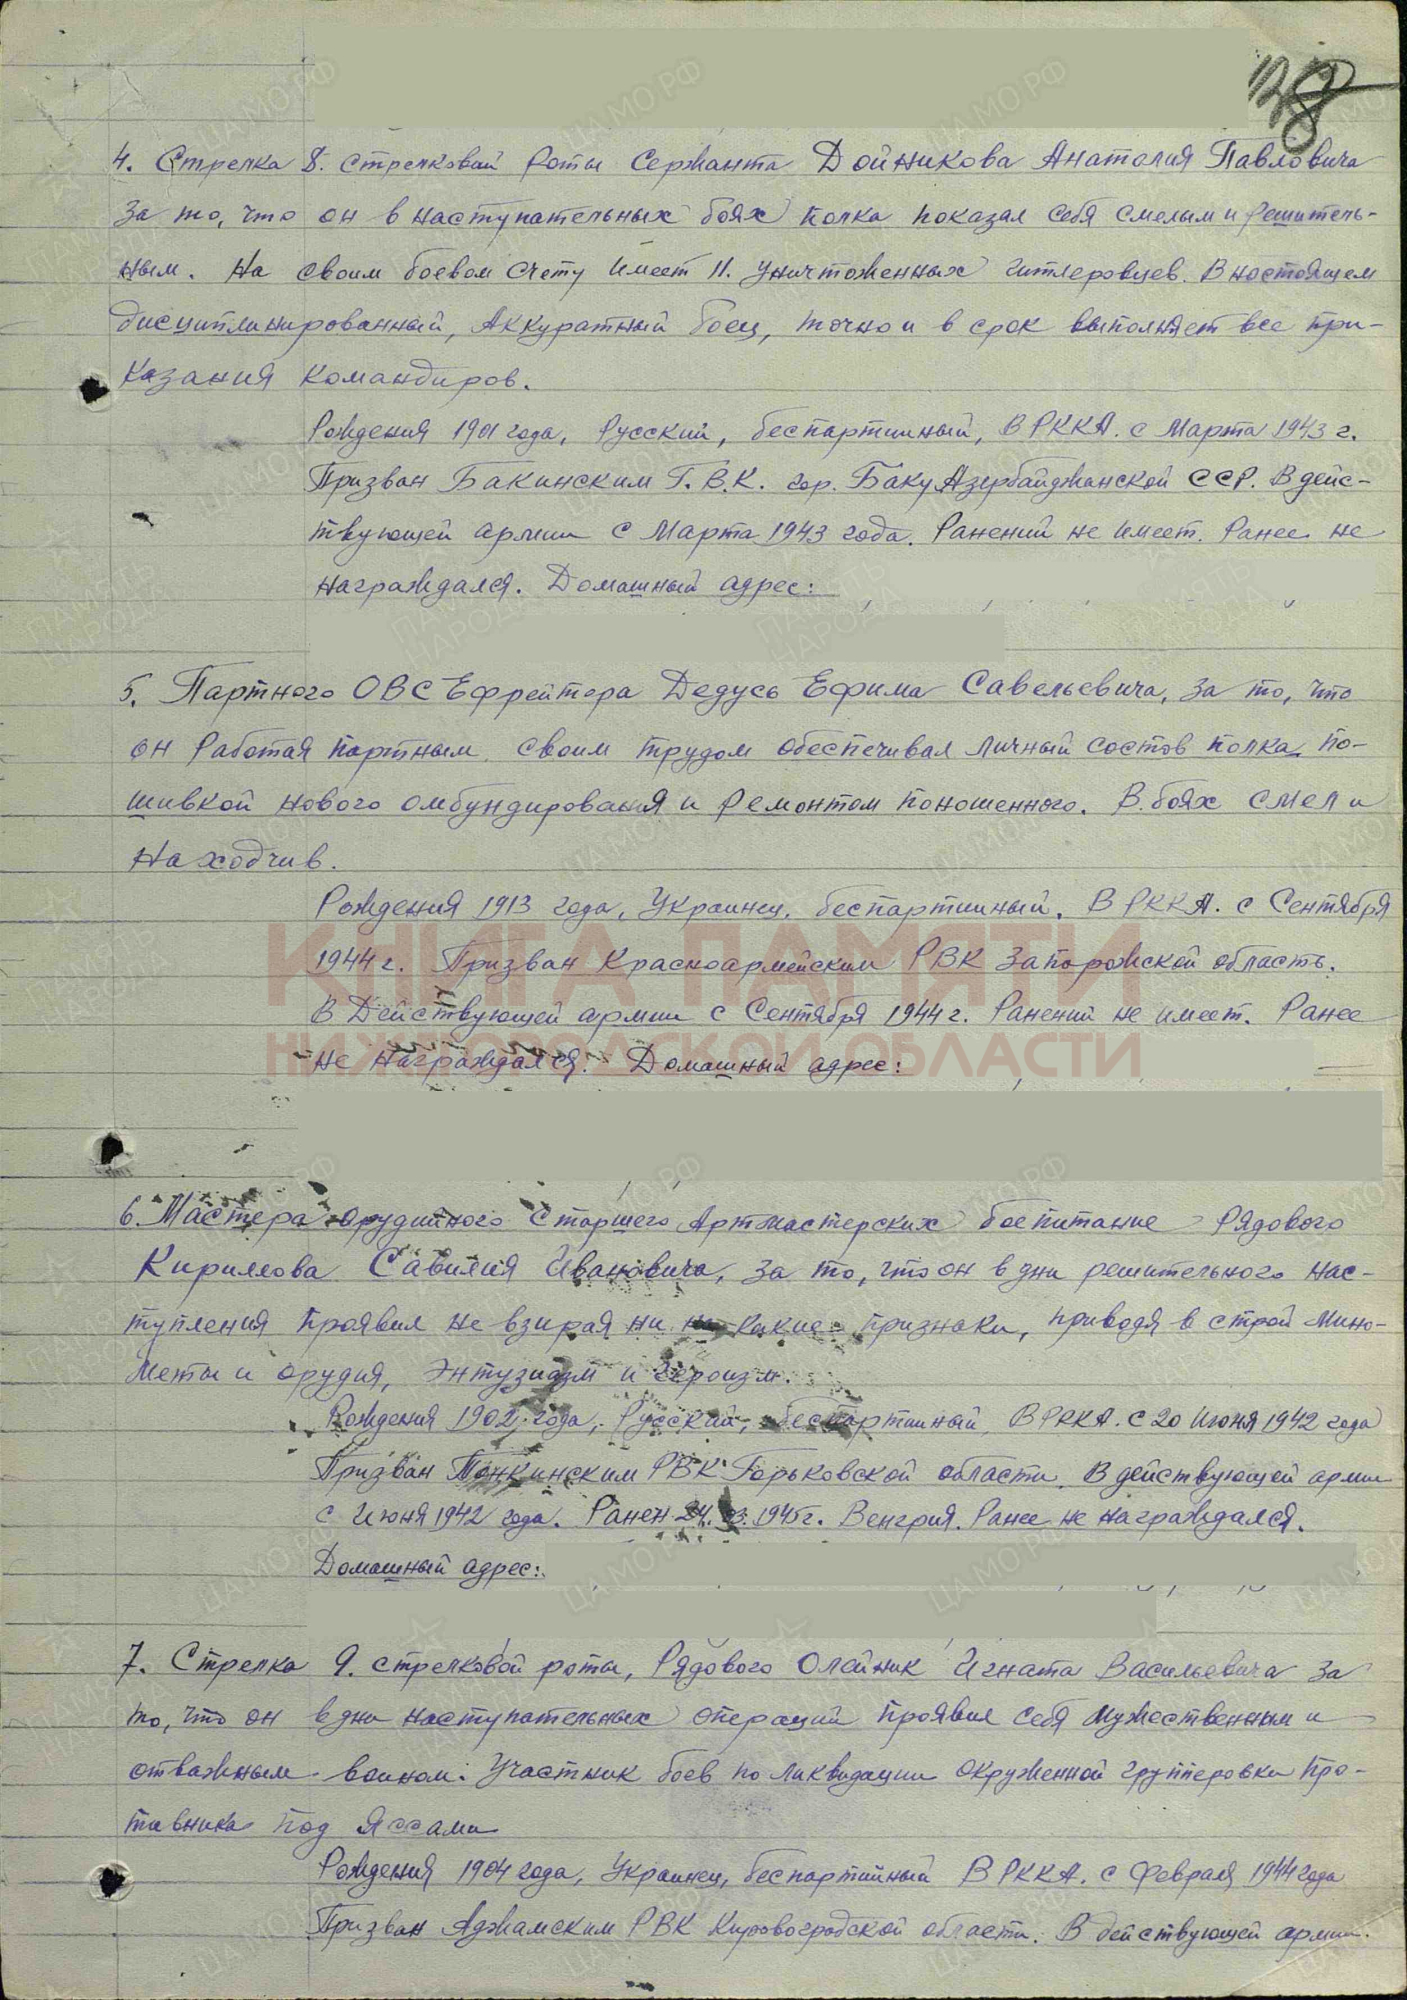 128
4. Стрелка 8. стрелковой роты Сержанта Дойникова Анатолия Павловича
за то, что он в наступательных боях полка показал себя смелым и решитель-
ным. На своим боевом счету имеет 11. уничтоженных гитлеровцев. В настоящем
дисциплинированный, аккуратный боец, точно и в срок выполняет все при-
казания командиров.
Рождения 1901 года, Русский, беспартийный, В РККА. с Марта 1943 г.
Призван Бакинским Г.В.К. гор. Баку Азербайджанской ССР. В дейс-
твующей армии с Марта 1943 года. Ранений не имеет. Ранее не
награждался. Домашный адрес:
5. Партного ОВС Ефрейтора Дедусь Ефима Савельевича, за то, что
он работая партным своим трудом обеспечивал личный состов полка по-
шивкой нового омбундирования и ремонтом поношенного. В боях смел и
находчив.
Рождения 1913 года, Украинец, беспартийный, В РККА. с Сентября
1944 г. Призван Красноармейским РВК Запорожской область.
В Действующей армии с Сентября 1944 г. Ранений не имеет. Ранее
не награждался. Домашный адрес:
КНИГА ПАМЯТИ
НИЖЕГОРОДСКОЙ ОБЛАСТИ
6. Мастера орудийного старшего Артмастерских боепитание рядового
Кириллова Савилия Ивановича, за то, что он в дни решительного нас-
тупления проявил не взирая ни на какие признаки, приводя в строй мино-
меты и орудия, энтузиазм и героизм.
Рождения 1902 года, Русский, беспартийный, В РККА. с 20 Июня 1942 года
Призван Тонкинским РВК Горьковской области. В действующей армии
с Июня 1942 года. Ранен 24. 1945 г. Венгрия. Ранее не награждался.
Домашный адрес:
7. Стрелка 9. стрелковой роты, Рядового Олейник Игната Васильевича за
то, что он в дни наступательных операций проявил себя мужественным и
отважным воином. Участник боев по ликвидации окруженной группировки про-
тивника под Яссами
Рождения 1904 года, Украинец, беспартийный В РККА. с Февраля 1944 года
Призван Аджамским РВК Кировоградской области. В действующей армии.